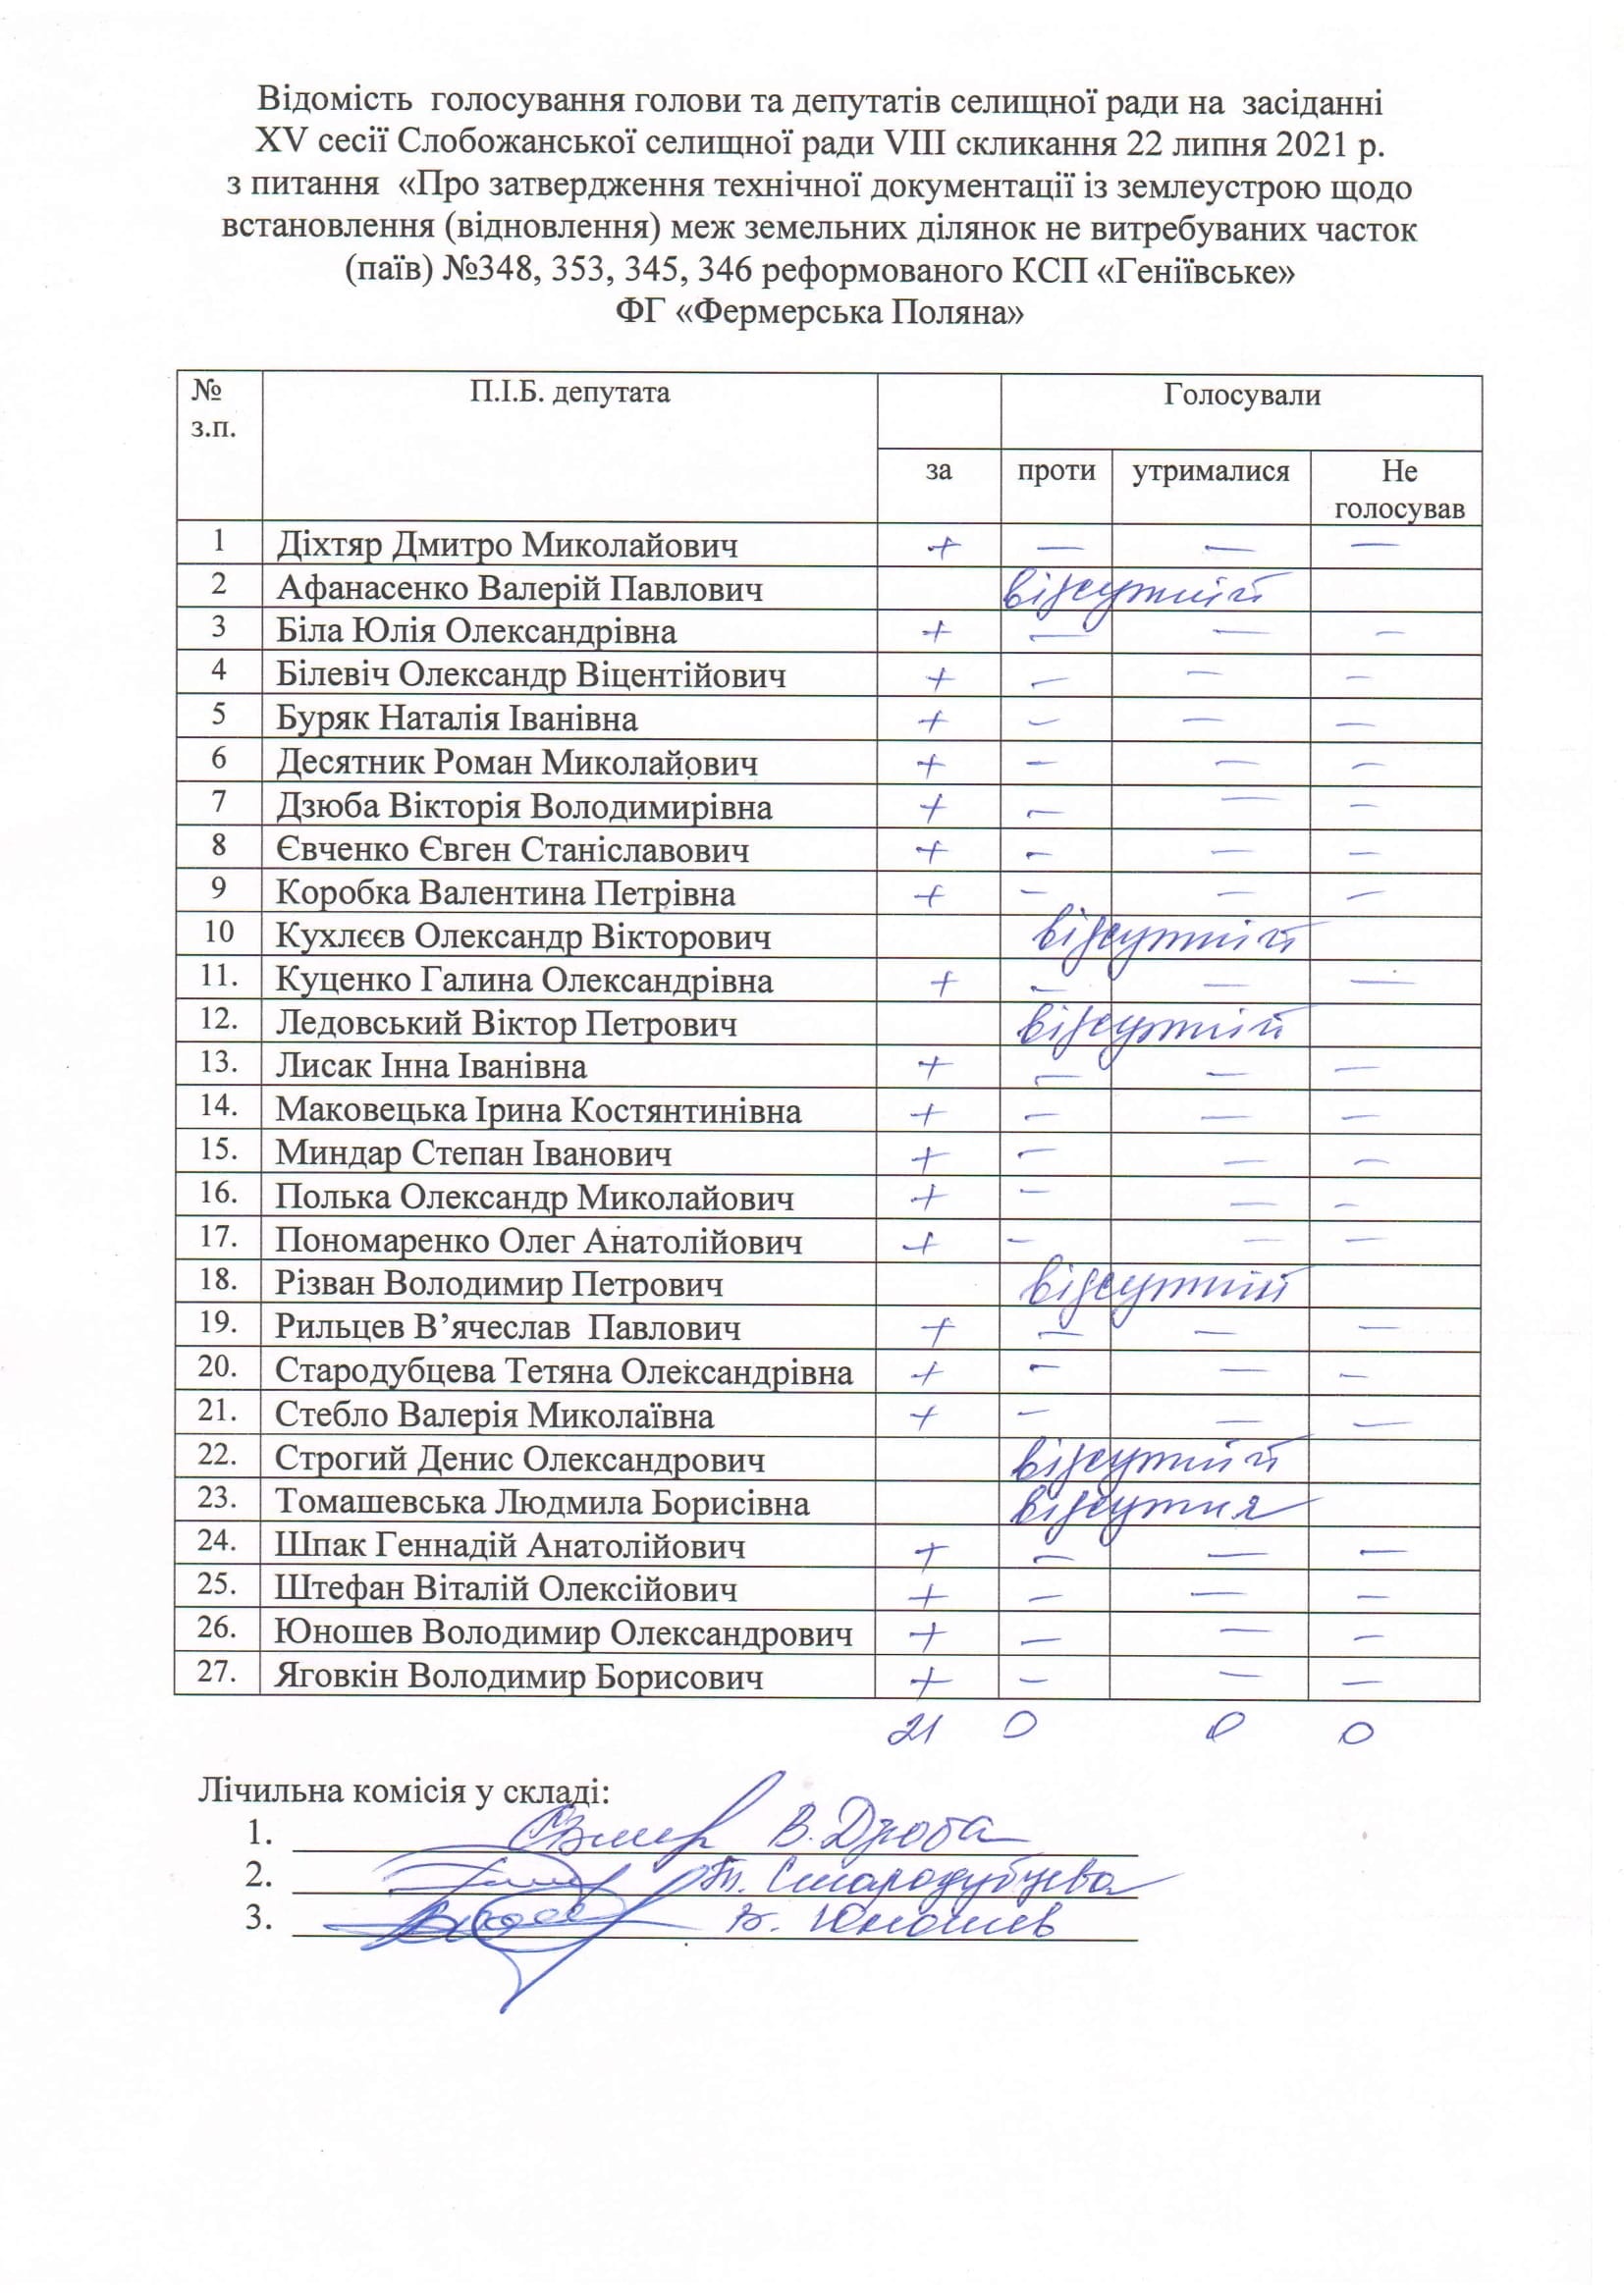 Відомість голосування голови та депутатів селищної ради на засіданні
XV сесії Слобожанської селищної ради VIII скликання 22 липня 2021 р.
з питання «Про затвердження технічної документації із землеустрою щодо
встановлення (відновлення) меж земельних ділянок не витребуваних часток
(паїв) №348, 353, 345, 346 реформованого КСП «Геніївське»
ФГ «Фермерська Поляна»
№ з.п. П.І.Б. депутата Голосували
за проти утрималися Не голосував
1 Діхтяр Дмитро Миколайович + — — —
2 Афанасенко Валерій Павлович відсутній
3 Біла Юлія Олександрівна + — — —
4 Білевіч Олександр Віцентійович + — — —
5 Буряк Наталія Іванівна + — — —
6 Десятник Роман Миколайович + — — —
7 Дзюба Вікторія Володимирівна + — — —
8 Євченко Євген Станіславович + — — —
9 Коробка Валентина Петрівна + — — —
10 Кухлєєв Олександр Вікторович відсутній
11. Куценко Галина Олександрівна + — — —
12. Ледовський Віктор Петрович відсутній
13. Лисак Інна Іванівна + — — —
14. Маковецька Ірина Костянтинівна + — — —
15. Миндар Степан Іванович + — — —
16. Полька Олександр Миколайович + — — —
17. Пономаренко Олег Анатолійович + — — —
18. Різван Володимир Петрович відсутній
19. Рильцев В’ячеслав Павлович + — — —
20. Стародубцева Тетяна Олександрівна + — — —
21. Стебло Валерія Миколаївна + — — —
22. Строгий Денис Олександрович відсутній
23. Томашевська Людмила Борисівна відсутня
24. Шпак Геннадій Анатолійович + — — —
25. Штефан Віталій Олексійович + — — —
26. Юношев Володимир Олександрович + — — —
27. Яговкін Володимир Борисович + — — —
21 0 0 0
Лічильна комісія у складі:
1. В. Дзюба
2. Т. Стародубцева
3. В. Юношев